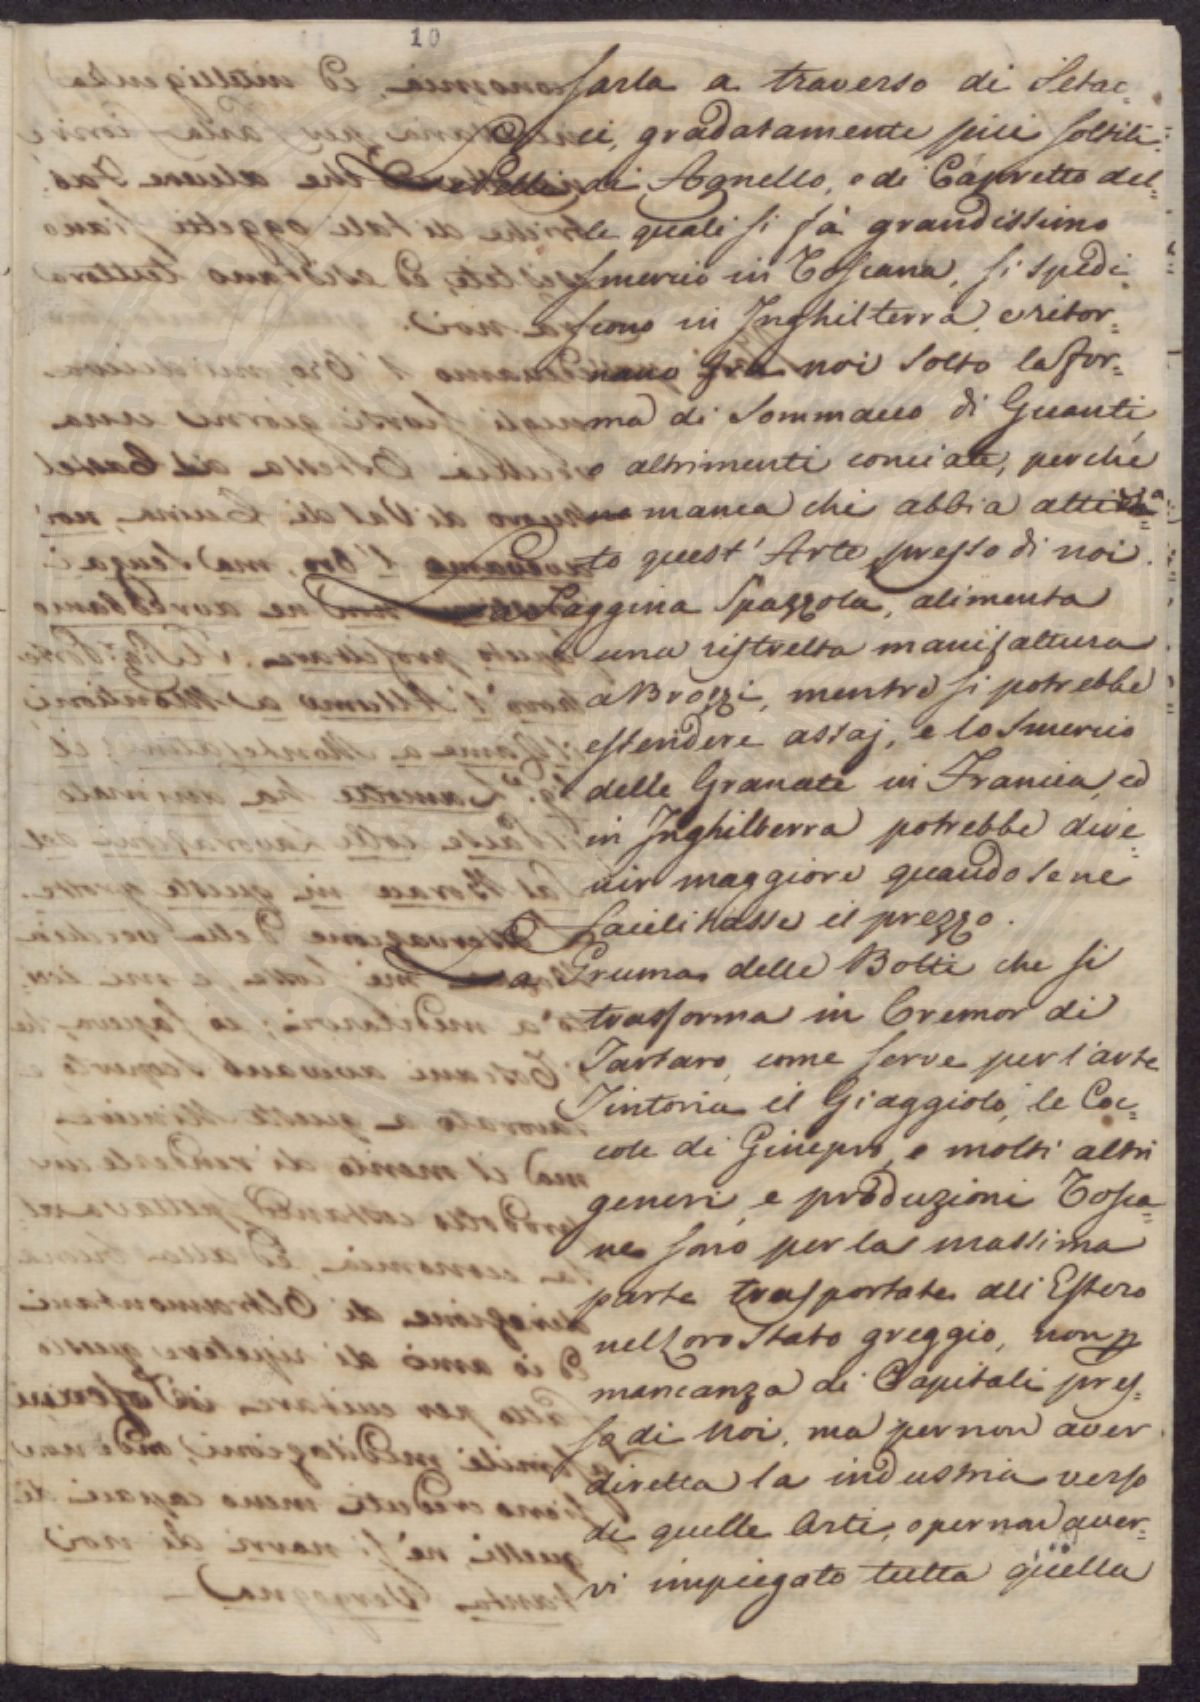 10
sarla a traverso di Setac=
ci, gradatamente più sottili.
Le Pelli di Agnello, e di Capretto del=
le quali si fà grandissimo
smercio in Toscana, si spedi=
scono in Inghilterra, e ritor=
nano fra noi sotto la for=
ma di Sommacco di Guanti
o altrimenti conciate, perché
manca chi abbia attiva=
to quest'Arte presso di noi.
La Saggina Spazzola, alimenta
una ristretta manifattura
a Brozzi, mentre si potrebbe
estendere assaj, e lo Smercio
delle Granate in Francia, ed
in Inghilterra potrebbe dive=
nir maggiore quando se ne
facilitasse il prezzo.
La Gruma delle Botti che si
trasforma in Cremor di
Tartaro, come serve per l'arte
Tintoria il Giaggiolo, le Coc=
cole di Ginepro, e molti altri
generi, e produzioni Tosca=
ne sono per la massima
parte trasportate all'Estero
nel loro Stato greggio, non p
mancanza di Capitali pres=
so di Noi, ma per non aver
diretta la industria verso
di quelle Arti, o per non aver=
vi impiegato tutta quella